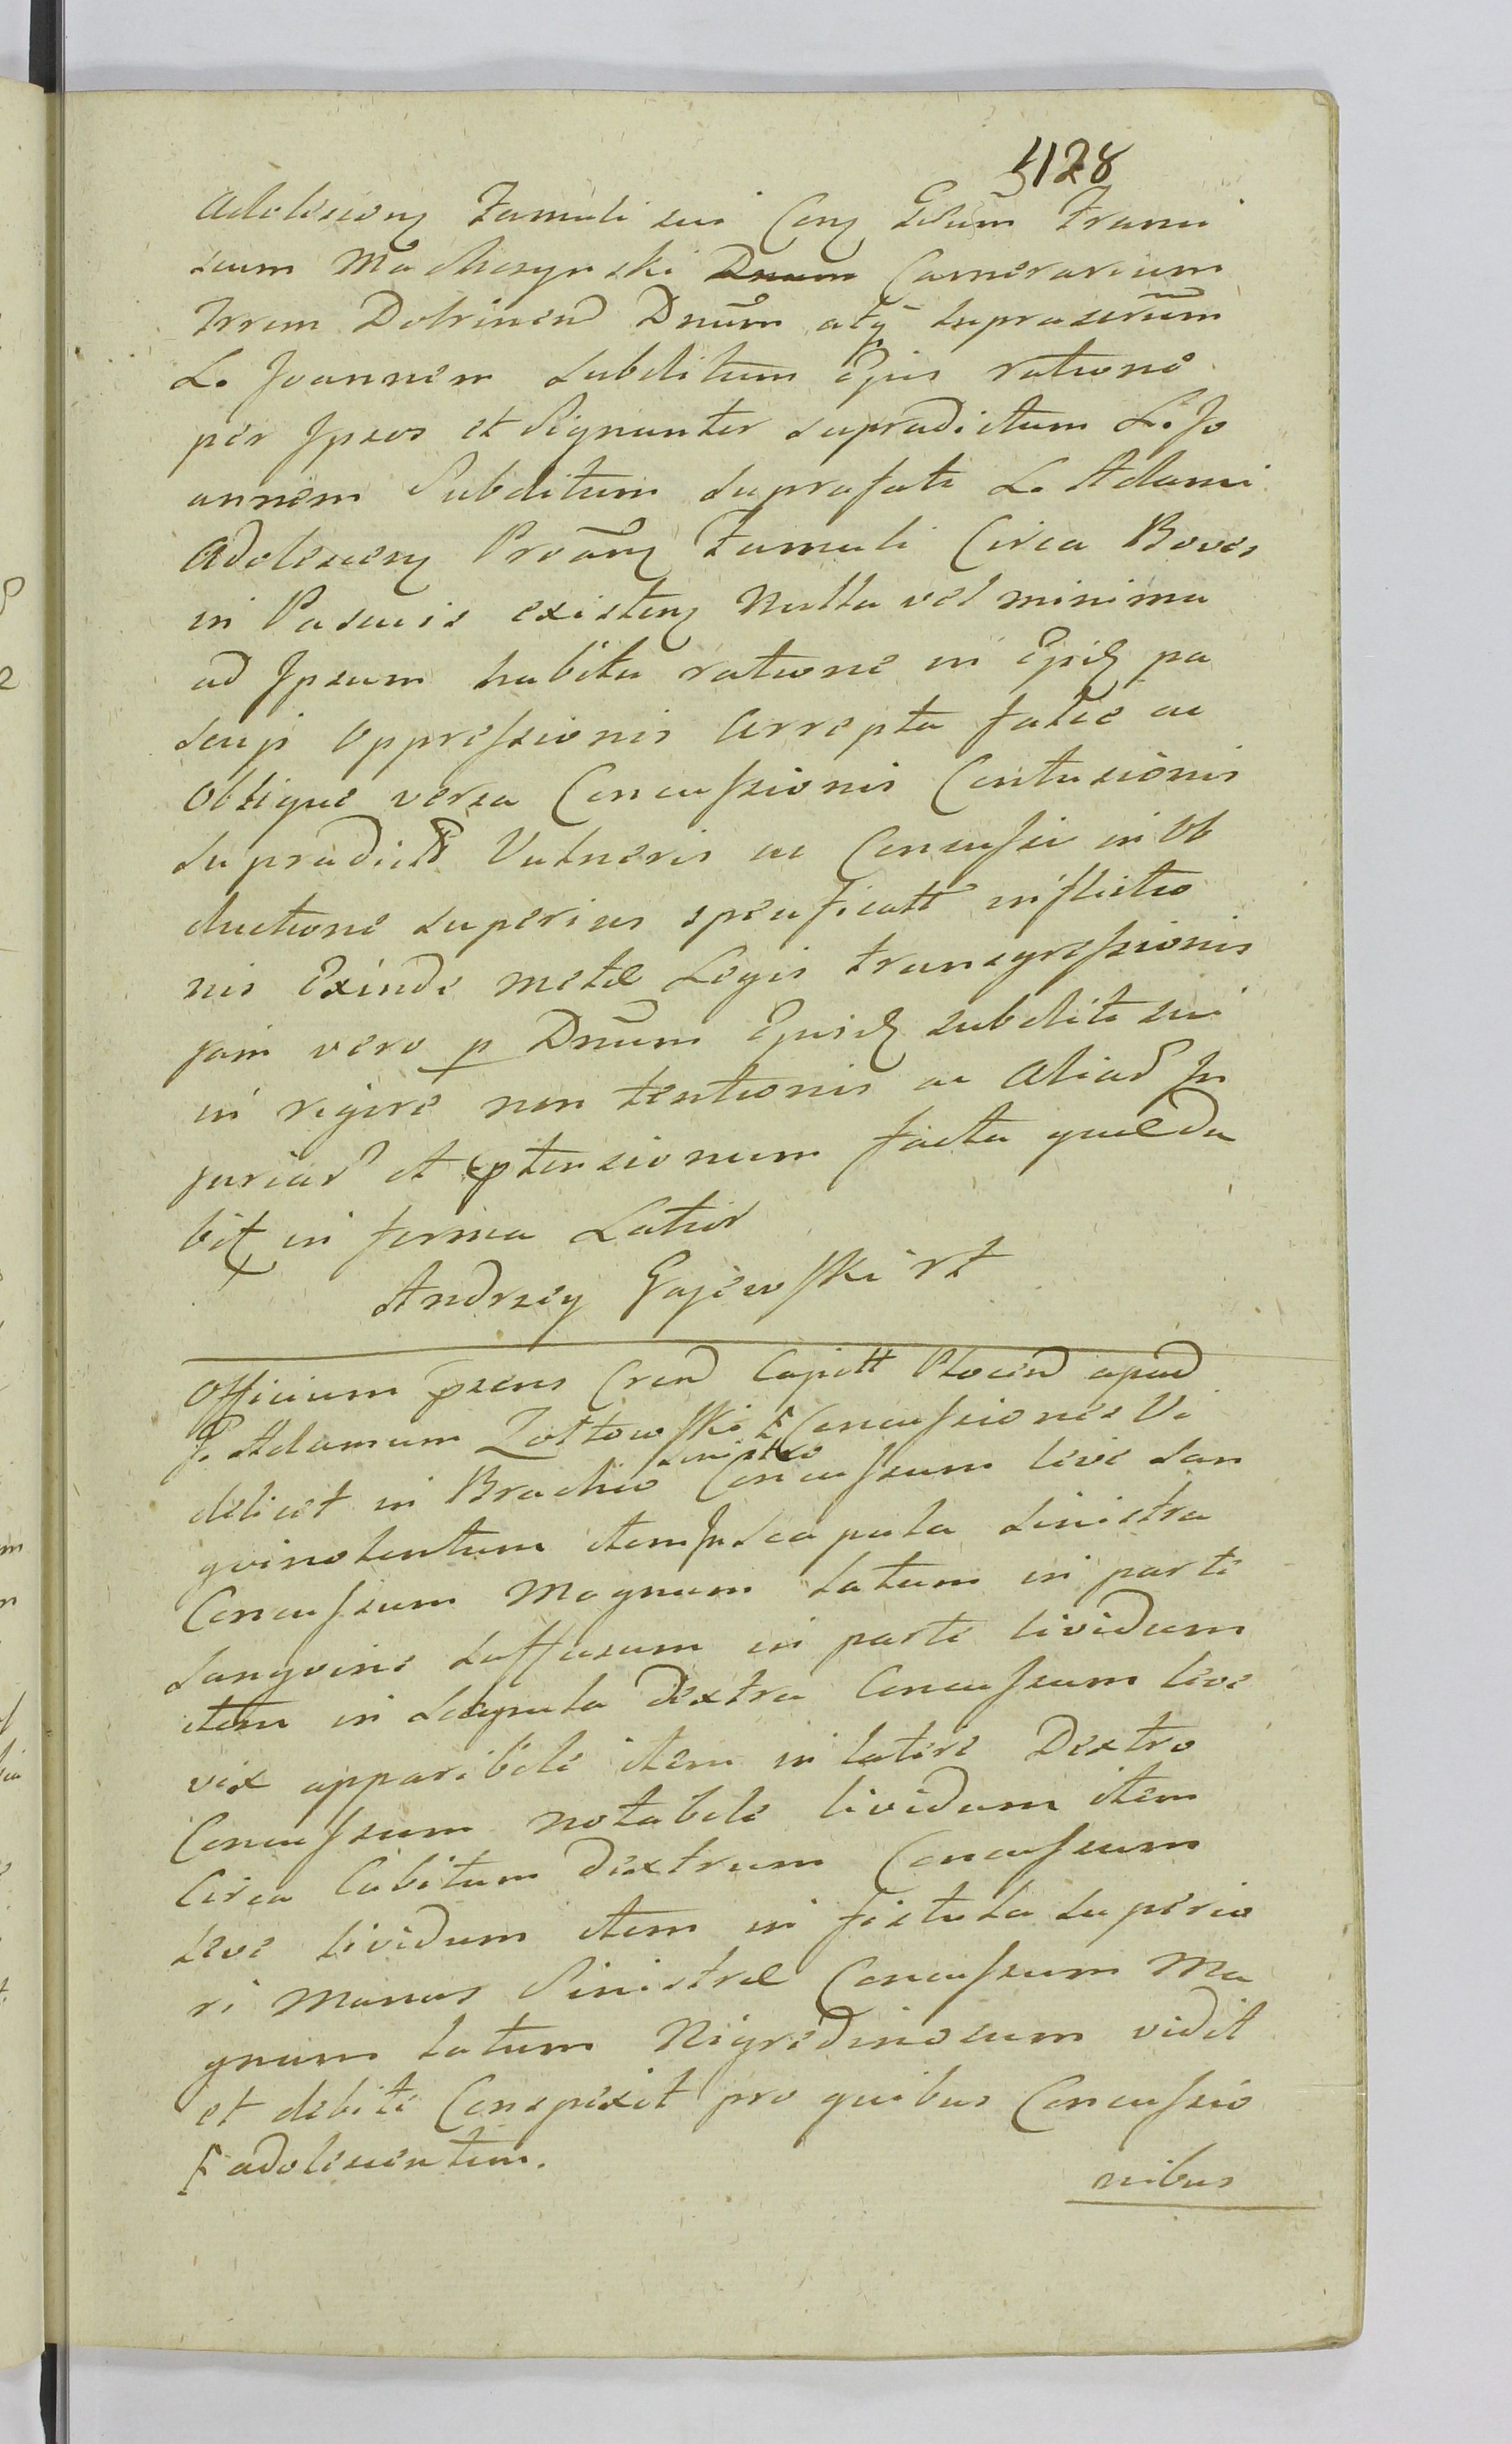 5128
Adolescen Famuli sui Con Gsum Franci
scum Machczynski Dnum Camerarium
Trrem Dobrinen Dnum atq suprascrum
L. Joannem subditum Ejus ratione
per Ipsos et Signanter supradictum L. Jo
annem Subditum suprafati L. Adami
Adolescen Proan Famuli Circa Boves
in Pascuis existen Nulla vel minima
ad Ipsum habita ratione in Ejsd pa
scuji Oppressionis Arrepta fatie ac
Oblique versa Concussionis Contusionis
supradictt Vulneris ac Concussii in Ob
ductione superius specificatt inflictio
nis Exinde metæ Legis transgressionis
jam vero p Dnum Ejusd subditi sui
in rigore non tentionis ac Aliar In
juriar et ptensionum facta quæda
bit in forma Latior
Andrzey Gajewski rt
Officium psens Cren Capitt Plocen apud
J. Adamum Zołtowski F Concussiones Vi
delicet in Brachio sinistro Concussum leve San
gvinolentum item In Scapula Sinistra
Concussum Magnum Latum in parte
Sangvine Suffusum in parte lividum
item in Scapula Dextra Concussum leve
vix apparibile item in latere Dextro
Concussum notabile lividum item
Circa Cubitum Dextrum Concussum
leve lividum item in fistula superio
ri Manus Sinistræ Concussum Ma
gnum latum Nigredinosum vidit
et debite Conspexit pro quibus Concussio
F adolescentem.
nibus